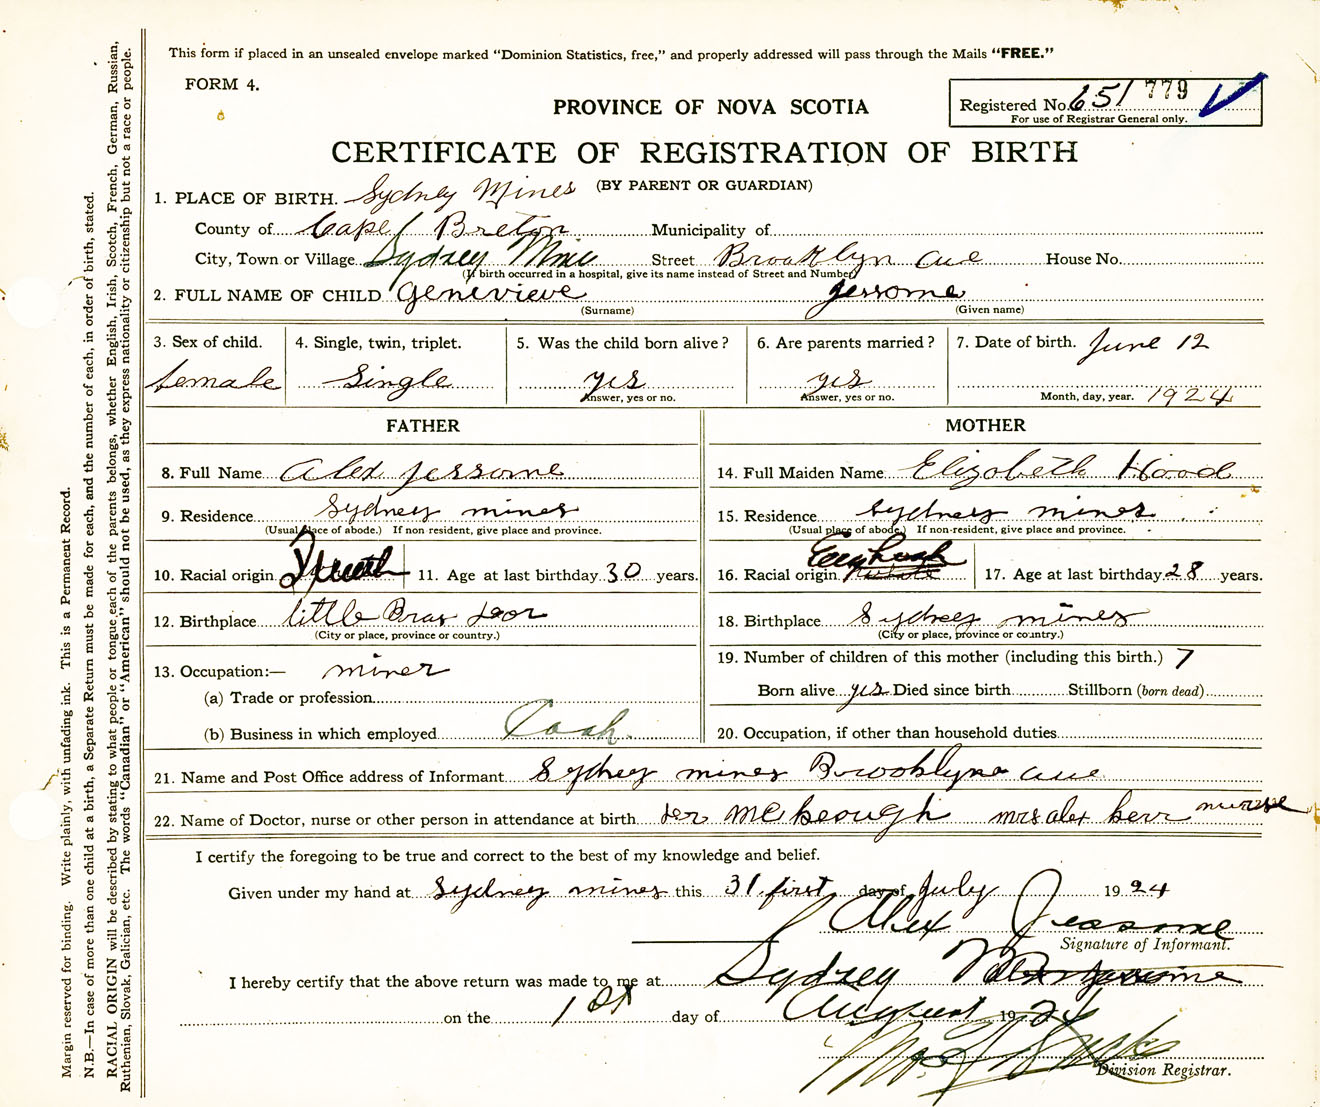 This form if placed in an unsealed envelope marked “Dominion Statistics, free,” and properly addressed will pass through the Mails “FREE.”
FORM 4.
Registered No. 651 779
For use of Registrar General only.
PROVINCE OF NOVA SCOTIA
CERTIFICATE OF REGISTRATION OF BIRTH
(BY PARENT OR GUARDIAN)
1. PLACE OF BIRTH. Sydney Mines
County of Cape Breton Municipality of
City, Town or Village Sydney Mines Street Brooklyn ave House No.
(If birth occurred in a hospital, give its name instead of Street and Number)
2. FULL NAME OF CHILD Genevieve Jessome
(Surname) (Given name)
3. Sex of child. female
4. Single, twin, triplet. Single
5. Was the child born alive? yes
Answer, yes or no.
6. Are parents married? yes
Answer, yes or no.
7. Date of birth. June 12
Month, day, year. 1924
FATHER
8. Full Name Alex Jessome
9. Residence Sydney mines
(Usual place of abode.) If non resident, give place and province.
10. Racial origin 11. Age at last birthday 30 years.
12. Birthplace little Bras Dor
(City or place, province or country.)
13. Occupation:— miner
(a) Trade or profession
(b) Business in which employed
MOTHER
14. Full Maiden Name Elizabeth Hood
15. Residence Sydney mines
(Usual place of abode.) If non-resident, give place and province.
16. Racial origin 17. Age at last birthday 28 years.
18. Birthplace Sydney mines
(City or place, province or country.)
19. Number of children of this mother (including this birth.) 7
Born alive yes Died since birth Stillborn (born dead)
20. Occupation, if other than household duties
21. Name and Post Office address of Informant Sydney mines Brooklyn ave
22. Name of Doctor, nurse or other person in attendance at birth McKeough mrs alex kerr nurse
I certify the foregoing to be true and correct to the best of my knowledge and belief.
Given under my hand at Sydney mines this 31 first day of July 1924
Alex Jessome
Signature of Informant.
I hereby certify that the above return was made to me at Sydney
on the 1st day of August 1924
Division Registrar.
Margin reserved for binding. Write plainly, with unfading ink. This is a Permanent Record.
N.B.—In case of more than one child at a birth, a Separate Return must be made for each, and the number of each, in order of birth, stated.
RACIAL ORIGIN will be described by stating to what people or tongue each of the parents belongs, whether English, Irish, Scotch, French, German, Russian,
Ruthenian, Slovak, Galician, etc. The words “Canadian” or “American” should not be used, as they express nationality or citizenship but not a race or people.